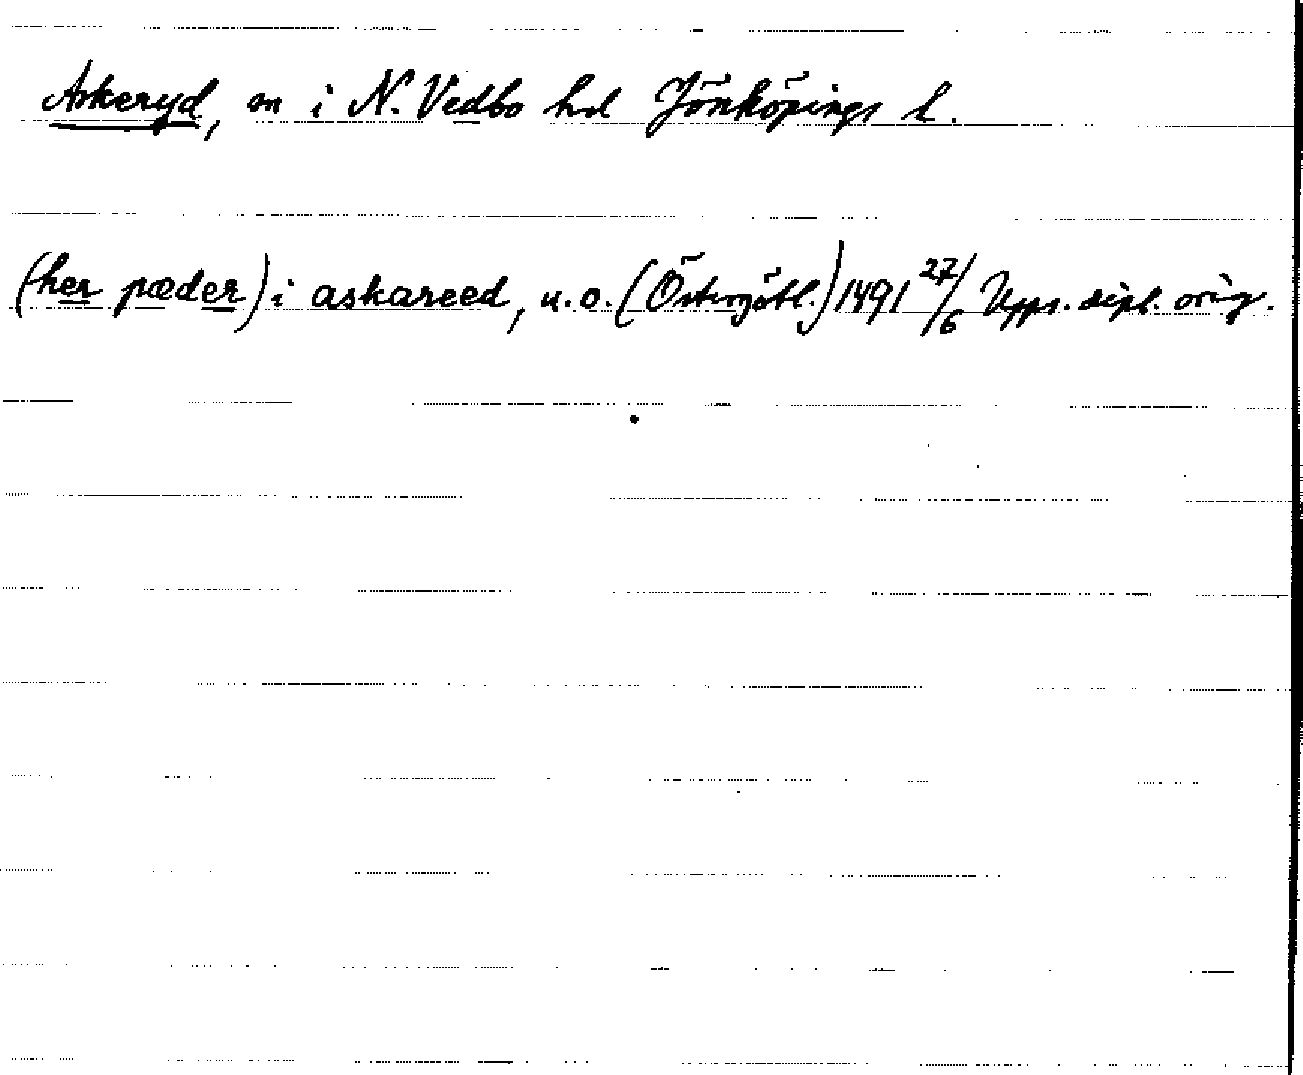 Askeryd, sn i N. Vedbo hd Jönköpings l.
(her pæder) i askareed, u.o. (Östergötl.) 1491 27/6 Upps. dipl. orig.